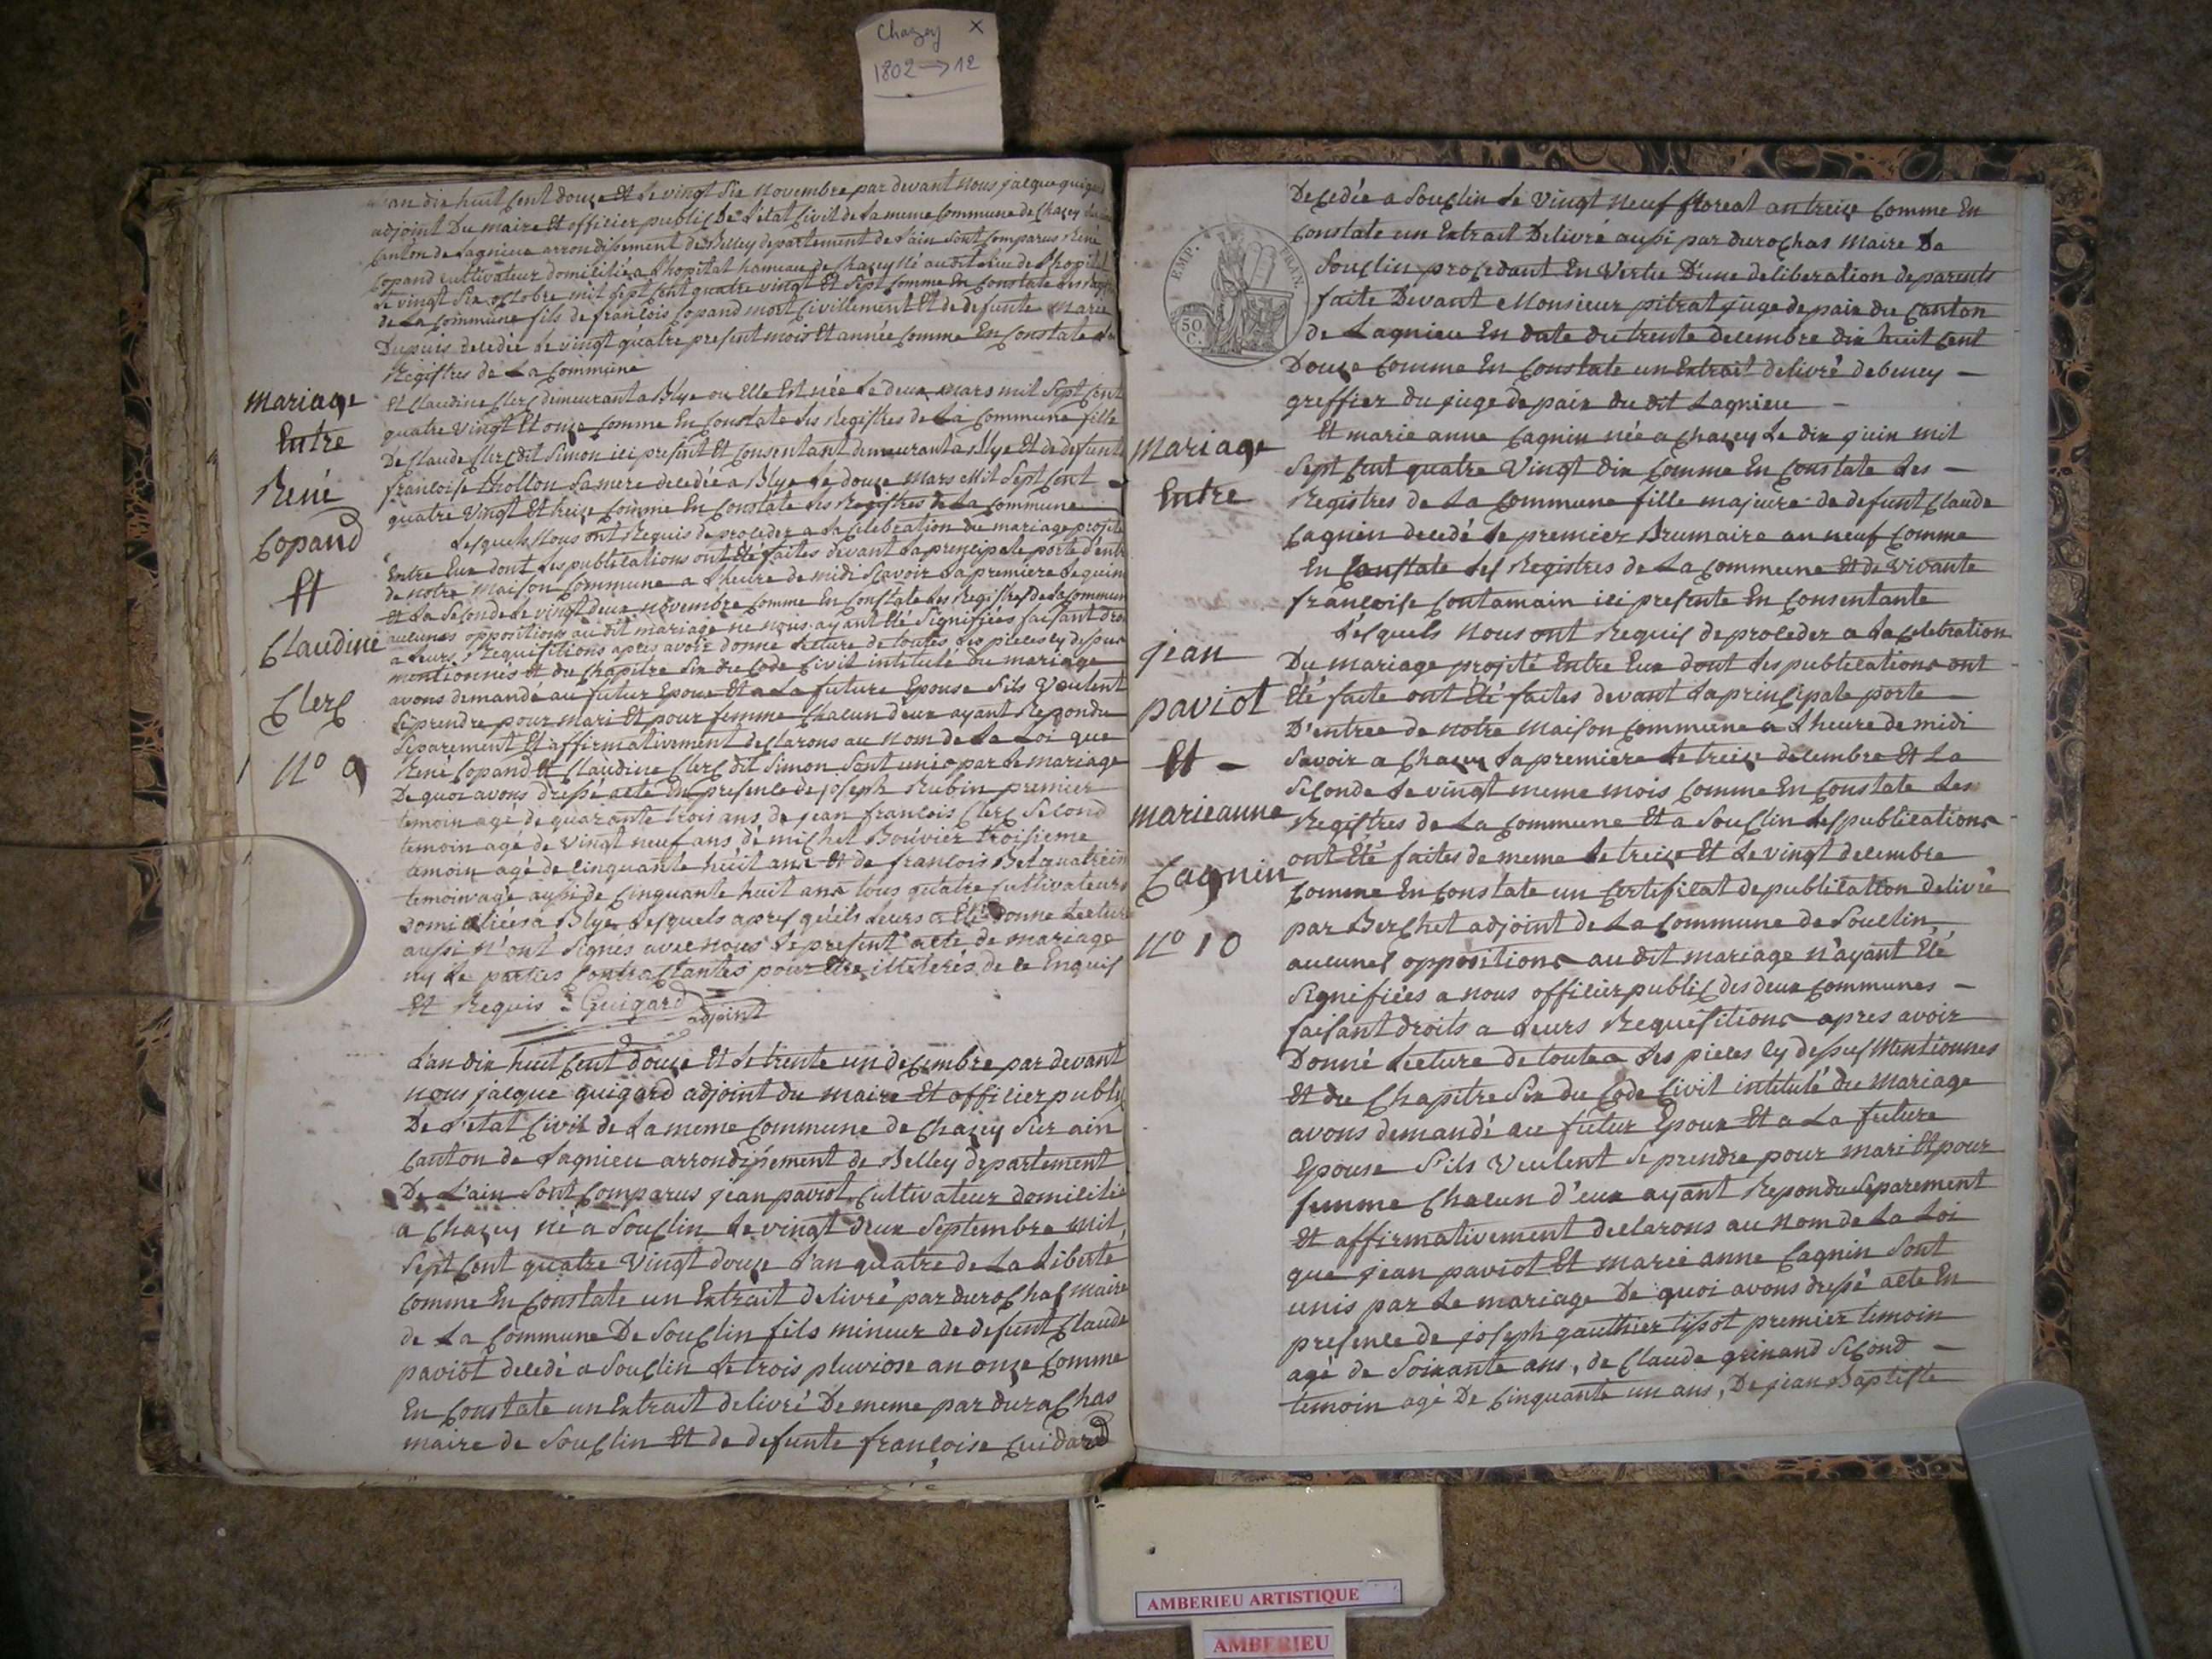 Chazey X
1802 → 12
an dix huit Cent douze Et Le vingt Six Novembre par devant Nous jacque guigard
adjoint Du maire Et officier public De L'état Civil de La meme Commune de Chazey
Canton de Lagnieu arrondissement de Belley departement de L'ain Sont Comparus René
Copand Cultivateur domicilié a Lhopital hameau de Chazey Né au dit Lieu de Lhopital
Le vingt Six octobre mil Sept Cent quatre vingt Et Sept Comme En Constate Les
de La Commune fils de francois Copand mort Civillement Et de defunte Marie
Dupuis decedée Le vingt quatre present mois Et année Comme En Constate
Registres de La Commune
Mariage
Entre
René
Copand
Et
Claudine
Clerc
N° 9
Et Claudine Clerc demeurant a Blye ou Elle Est née Le deux mars mil Sept Cent
quatre Vingt Et onze Comme En Constate Les Registres de La Commune fille
De Claude Clerc dit Simon ici present Et Consentant demeurant a Blye Et de defunte
francoise Thollon Sa mere decedée a Blye Le douze Mars Mil Sept Cent
quatre Vingt Et treize Comme En Constate Les Registres de La Commune
Lesquels Nous ont Requis de proceder a La Celebration du mariage projeté
Entre Eux dont Les publications ont Eté faites devant La principale porte d'entr
de notre Maison Commune a Lheure de midi Scavoir La premiere Le quin
Et La Seconde Le vingt deux Novembre Comme En Constate Les Registres de La Commun
aucunes oppositions au dit mariage ne nous ayant Eté Signifiées faisant droi
a Leurs Requisitions apres avoir donne Lecture de toutes Les pieces cy dessus
mentionnés Et du Chapitre Six du Code Civil intitulé Du mariage
avons demande au futur Epoux Et a La future Epouse Sils Veulent
Se prendre pour mari Et pour femme Chacun deux ayant Repondu
Separement Et affirmativement declarons au Nom de La Loi que
René Copand Et Claudine Clerc dit Simon Sont unis par Le mariage
De quoi avons dressé acte En presence de joseph Rubin premier
temoin agé de quarante trois ans, de jean francois Clerc Second
temoin agé de Vingt neuf ans de michel Bouvier troisieme
temoin agé de Cinquante huit ans Et de francois Bel quatriem
temoin agé aussi de Cinquante huit ans tous quatre Cultivateurs
Domiciliés a Blye Lesquels apres qu'ils Leurs a Eté donne Lecture
aussi N'ont Signes avec nous Le present acte de mariage
ny Le parties Contractantes pour Etre illiterés de Ce Enquis
Et Requis Guigard
adjoint
L'an dix huit Cent douze Et Le trente un decembre par devant
nous jacque guigard adjoint du maire Et officier public
De L'état Civil de La meme Commune de Chazey Sur ain
Canton de Lagnieu arrondissement de Belley departement
De L'ain Sont Comparus jean paviot Cultivateur domicilié
a Chazey né a Souclin Le vingt deux Septembre mil
Sept Cent quatre Vingt douze L'an quatre de La Liberté
Comme En Constate un Extrait delivré par durochas maire
de La Commune De Souclin fils mineur de defunt Claude
paviot decedé a Souclin Le trois pluviose an onze Comme
En Constate un Extrait delivré De meme par durochas
maire de Souclin Et de defunte françoise Cuidard
EMP. FRAN.
50
C.
Decedée a Souclin Le Vingt Neuf floreal an treize Comme En
Constate un Extrait Delivré aussi par durochas Maire De
Souclin procedant En Vertu D'une deliberation de parents
faite Devant Monsieur pitrat juge de paix du Canton
de Lagnieu En date du trente decembre dix huit Cent
Douze Comme En Constate un Extrait delivré debeney
greffier du juge de paix du dit Lagnieu
Mariage
Entre
jean
paviot
Et
marieanne
Cagnin
N° 10
Et marie anne Cagnin née a Chazey Le dix juin mil
Sept Cent quatre Vingt dix Comme En Constate Les
Registres de La Commune fille majeure de defunt Claude
Cagnin decedé Le premier Brumaire an neuf Comme
En Constate Les Registres de La Commune Et de Vivante
françoise Contamain ici presente En Consentante
Lesquels Nous ont Requis de proceder a La Celebration
Du mariage projeté Entre Eux dont Les publications ont
Eté faite ont Eté faites devant La principale porte
D'entree de notre Maison Commune a Lheure de midi
Savoir a Chazey La premiere Le treize decembre Et La
Seconde Le vingt meme mois Comme En Constate Les
Registres de La Commune Et a Souclin Les publications
ont Eté faites de meme Le treize Et Le vingt decembre
Comme En Constate un Certificat de publication delivré
par Berchet adjoint de La Commune de Souclin
aucunes oppositions au dit mariage n'ayant Eté
Signifiées a nous officier public des deux Communes
faisant droits a Leurs Requisitions apres avoir
Donné Lecture de toutes Les pieces Cy dessus Mentionnes
Et du Chapitre Six du Code Civil intitulé du Mariage
avons demandé au futur Epoux Et a La future
Epouse S'ils Veulent Se prendre pour mari Et pour
femme Chacun d'eux ayant Repondu Separement
Et affirmativement declarons au Nom de La Loi
que jean paviot Et marie anne Cagnin Sont
unis par Le mariage De quoi avons dressé acte En
presence de joseph gauthier tissot premier temoin
agé de Soixante ans, de Claude grinand Second
temoin agé De Cinquante un ans, De jean Baptiste
AMBERIEU ARTISTIQUE
AMBERIEU